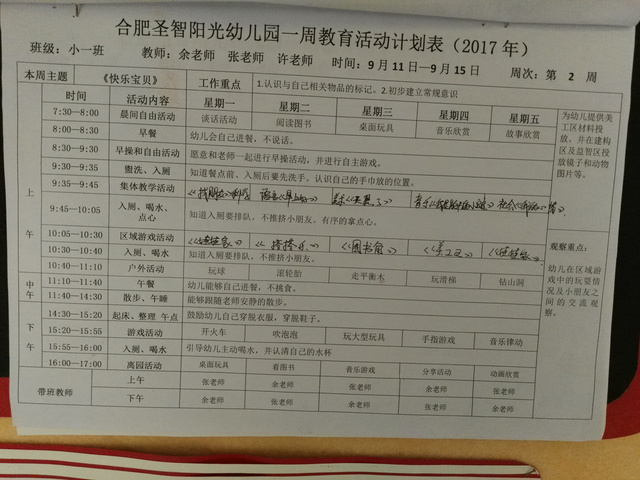 合肥圣智阳光幼儿园一周教育活动计划表（2017 年）
班级：小一班 教师：余老师 张老师 许老师 时间：9 月 11 日—9 月 15 日 周次：第 2 周
本周主题 《快乐宝贝》 工作重点 1.认识与自己相关物品的标记。2.初步建立常规意识
时间 活动内容 星期一 星期二 星期三 星期四 星期五
7:30—8:00 晨间自由活动 谈话活动 阅读图书 桌面玩具 音乐欣赏 故事欣赏
8:00—8:30 早餐 幼儿会自己进餐，不说话。
8:30—9:30 早操和自由活动 愿意和老师一起进行早操活动，并进行自主游戏。
9:30—9:35 盥洗、入厕 知道餐点前、入厕后要先洗手。认识自己的手巾放的位置。
9:35—9:45 集体教学活动
9:45—10:05 入厕、喝水、点心 知道入厕要排队，不推挤小朋友。有序的拿点心。
10:05—10:30 区域游戏活动 《图书角》
10:30—10:40 入厕、喝水 知道入厕要排队，不推挤小朋友。
10:40—11:10 户外活动 玩球 滚轮胎 走平衡木 玩滑梯 钻山洞
11:10—11:40 午餐 幼儿能够自己进餐，不挑食。
11:40—14:30 散步、午睡 能够跟随老师安静的散步。
14:30—15:20 起床、整理 午点 鼓励幼儿自己穿脱衣服，穿脱鞋子。
15:20—15:55 游戏活动 开火车 吹泡泡 玩大型玩具 手指游戏 音乐律动
15:55—16:00 入厕、喝水 引导幼儿主动喝水，并认清自己的水杯
16:00—17:00 离园活动 桌面玩具 看图书 音乐游戏 分享活动 动画欣赏
带班教师 上午 余老师 张老师 张老师 余老师 张老师
下午 余老师 余老师 余老师 张老师 余老师
上
午
中
午
下
午
为幼儿提供美
工区材料投
放。并在建构
区及益智区投
放镜子和动物
图片等。
观察重点：
幼儿在区域游
戏中的玩耍情
况及小朋友之
间的交流观
察。